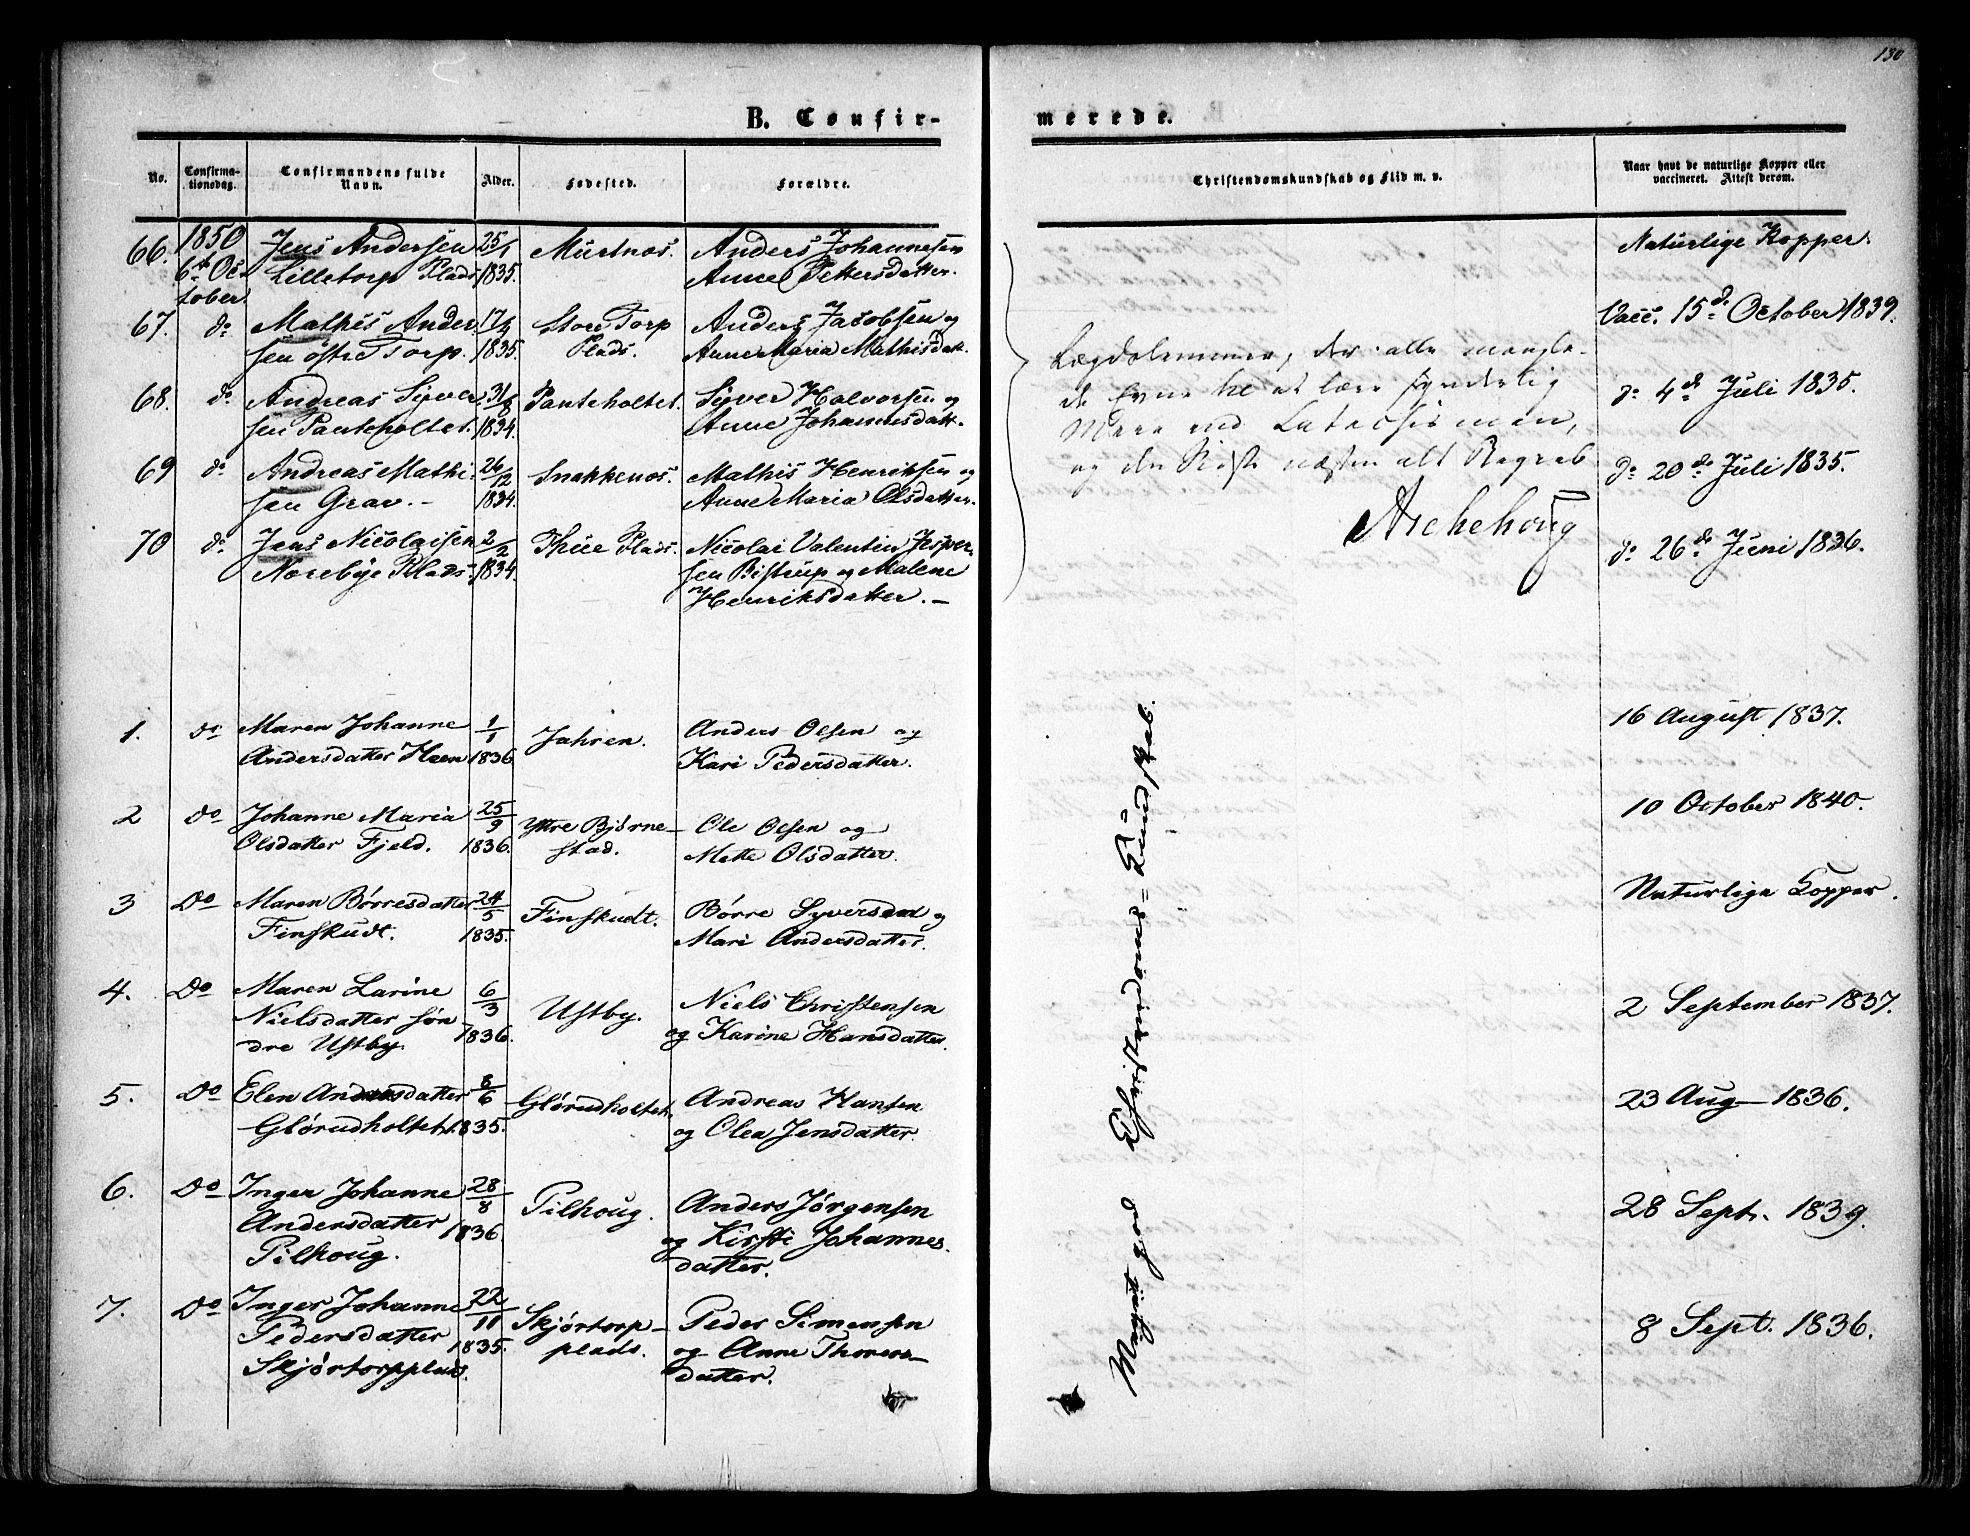 130
B. Confir-
merede.
No.
Confirma-
tionsdag.
Confirmandens fulde
Navn.
Alder.
Fødested.
Forældre.
Christendomskundskab og Flid m. v.
Naar havt de naturlige Kopper eller
vaccineret. Attest derom.
66. 1850 Jens Andersen 25/1 Anders Johannesen Naturlige Kopper.
6te Oc- Lilletorp Plads 1835. Anne Pettersdatter.
tober.
67. do Mathis Ander 17/4 Store Torp Anders Jacobsen og Vacc. 15d October 1839.
sen østre Torp. 1835. Plads. Anne Maria Mathisdatt.
68. do Andreas Syver 31/8 Panteholtet. Syver Halvorsen og do 4d Juli 1835.
sen Panteholtet. 1834. Anne Johannesdatt.
69 do Andreas Mathi- 26/12 Snakkenes. Mathis Henriksen og do 20de Juli 1835.
sen Grav. 1834. Anne Maria Olsdatter.
70 do Jens Nicolaisen 2/2 Thue Plads. Nicolai Valentin Jesper- do 26de Juni 1836.
Norebye Plads. 1834. sen Bistrup og Malene
Henriksdatter.
der alle mangle-
de Evne til at lære synderlig
Mere end Catechismen,
og den Siste næsten alt Begreb
Aschehoug
1. do Maren Johanne 1/1 Jahren. Anders Olsen og 16 August 1837.
Andersdatter Haen 1836 Kari Pedersdatter.
2 do Johanne Maria 25/9 Yttre Bjørne- Ole Olsen og 10 October 1840.
Olsdatter Fjeld. 1836. stad. Mette Olsdatter.
3 Do Maren Børresdatter 24/5 Finskudt. Børre Syversen og Naturlige Kopper.
Finskudt. 1835. Mari Andersdatter.
4. Do Maren Larine 6/3 Ustby. Niels Christensen 2 September 1837.
Nielsdatter søn 1836. og Karine Hansdatter
dre Ustby.
5. Do Elen Andreasdatter 8/6 Glørudholtet. Andreas Hansen 23 Aug 1836.
Glørudholtet. 1835. og Olea Jensdatter.
6. Do Inger Johanne 28/8 Pilhoug. Anders Jørgensen 28 Sept. 1839.
Andersdatter 1836. og Kirsti Johannes
Pilhoug. datter.
7. Do Inger Johanne 22/11 Skjørtorp- Peder Simensen 8 Sept. 1836.
Pedersdatter 1835. plads. og Anne Thores-
Skjørtorpplads. datter.
Meget god Christendoms-Kundskab.